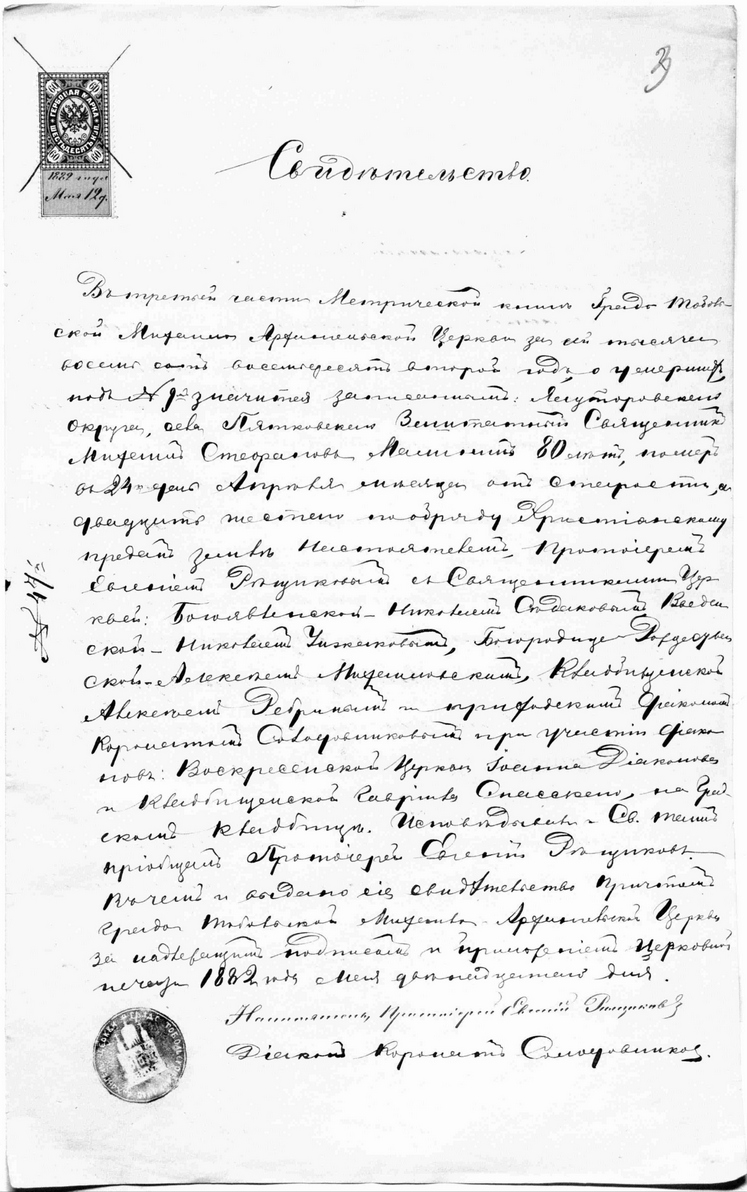 39
60 60
ГЕРБОВАЯ МАРКА
ШЕСТЬДЕСЯТЪ КОП.
60 60
1882 года
Мая 12 д.
Свидѣтельство.
Въ третьей части Метрической книги Градо Тоболь-
ской Михаило Архангельской Церкви за сей тысяча
восемь сотъ восемьдесятъ второй годъ, о умершихъ,
подъ № значится записаннымъ: Ялуторовскаго
округа, села Пятковскаго Заштатный Священникъ
Михаилъ Стефановъ 80 лѣтъ, померъ
въ 24й день Апрѣля мѣсяца отъ старости, а
двадцать шестаго по обряду Христіанскому
преданъ землѣ Настоятелемъ, Протоіереемъ
Евгеніемъ съ Священниками Цер-
квей: Богоявленской – Николаемъ Введен-
ской – Николаемъ Богородице-Рождествен
ской – Алексѣемъ Кладбищенской
Алексѣемъ и приходскимъ Діакономъ
Солодовниковымъ при участіи діако
новъ: Воскресенской Церкви Іоанна Діаконова
и Кладбищенской Гавріила Спасскаго, на Град-
скомъ кладбищѣ. Исповѣдывалъ и Св. таинъ
пріобщалъ Протоіерей Евгеній
Въ чемъ и выдано сіе свидѣтельство Причтомъ
Градо Тобольской Михаило-Архангельской Церкви
за надлежащимъ подписомъ и приложеніемъ Церковной
печати 1882 года Мая двѣнадцатаго дня.
№ 47й
Настоятель, Протоіерей Евгеній
Діаконъ Солодовниковъ.